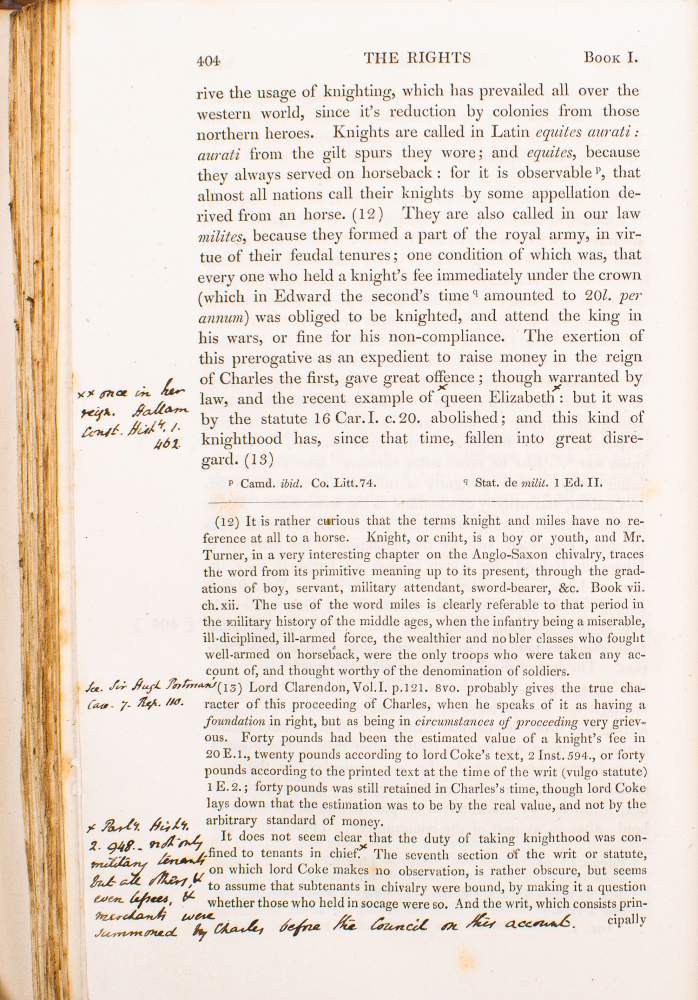 404 THE RIGHTS BOOK I.
rive the usage of knighting, which has prevailed all over the
western world, since it's reduction by colonies from those
northern heroes. Knights are called in Latin equites aurati:
aurati from the gilt spurs they wore; and equites, because
they always served on horseback: for it is observable p, that
almost all nations call their knights by some appellation de-
rived from an horse. (12) They are also called in our law
milites, because they formed a part of the royal army, in vir-
tue of their feudal tenures; one condition of which was, that
every one who held a knight's fee immediately under the crown
(which in Edward the second's time q amounted to 20l. per
annum) was obliged to be knighted, and attend the king in
his wars, or fine for his non-compliance. The exertion of
this prerogative as an expedient to raise money in the reign
of Charles the first, gave great offence; though warranted by
law, and the recent example of x queen Elizabeth x: but it was
by the statute 16 Car. I. c. 20. abolished; and this kind of
knighthood has, since that time, fallen into great disre-
gard. (13)
xx once in her
reign. Hallam
Const. Histy. 1.
462
p Camd. ibid. Co. Litt. 74. q Stat. de milit. 1 Ed. II.
(12) It is rather curious that the terms knight and miles have no re-
ference at all to a horse. Knight, or cniht, is a boy or youth, and Mr.
Turner, in a very interesting chapter on the Anglo-Saxon chivalry, traces
the word from its primitive meaning up to its present, through the grad-
ations of boy, servant, military attendant, sword-bearer, &c. Book vii.
ch. xii. The use of the word miles is clearly referable to that period in
the military history of the middle ages, when the infantry being a miserable,
ill-diciplined, ill-armed force, the wealthier and nobler classes who fought
well-armed on horseback, were the only troops who were taken any ac-
count of, and thought worthy of the denomination of soldiers.
See. Sir Hugh Portman's
Case. 7. Rep. 110.
(13) Lord Clarendon, Vol. I. p. 121. 8vo. probably gives the true cha-
racter of this proceeding of Charles, when he speaks of it as having a
foundation in right, but as being in circumstances of proceeding very griev-
ous. Forty pounds had been the estimated value of a knight's fee in
20 E. 1., twenty pounds according to lord Coke's text, 2 Inst. 594., or forty
pounds according to the printed text at the time of the writ (vulgo statute)
1 E. 2.; forty pounds was still retained in Charles's time, though lord Coke
lays down that the estimation was to be by the real value, and not by the
arbitrary standard of money.
It does not seem clear that the duty of taking knighthood was con-
fined to tenants in chief. x The seventh section of the writ or statute,
on which lord Coke makes no observation, is rather obscure, but seems
to assume that subtenants in chivalry were bound, by making it a question
whether those who held in socage were so. And the writ, which consists prin-
cipally
x Parly. Histy.
2. 948. - not only
military tenants
but all others, &
even lepees, &
merchants were
summoned by Charles before the Council on this account.